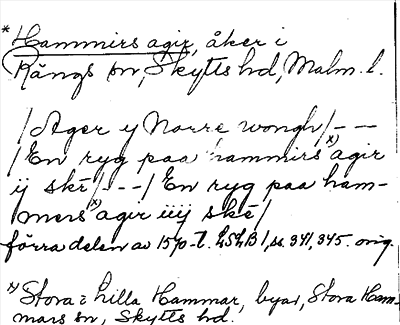 * Hammirs agir, åker i
Rängs sn, Skytts hd, Malm. l.
/Ager y Norre wongh/ - - -
/En ryg paa hammirs x) agir
ij ské/ - - - /En ryg paa ham-
mers x) agir iiij ské/
förra delen av 1570-t. LSLB 1, ss. 341, 345. orig.
x) Stora o Lilla Hammar, byar, Stora Ham-
mars sn, Skytts hd.